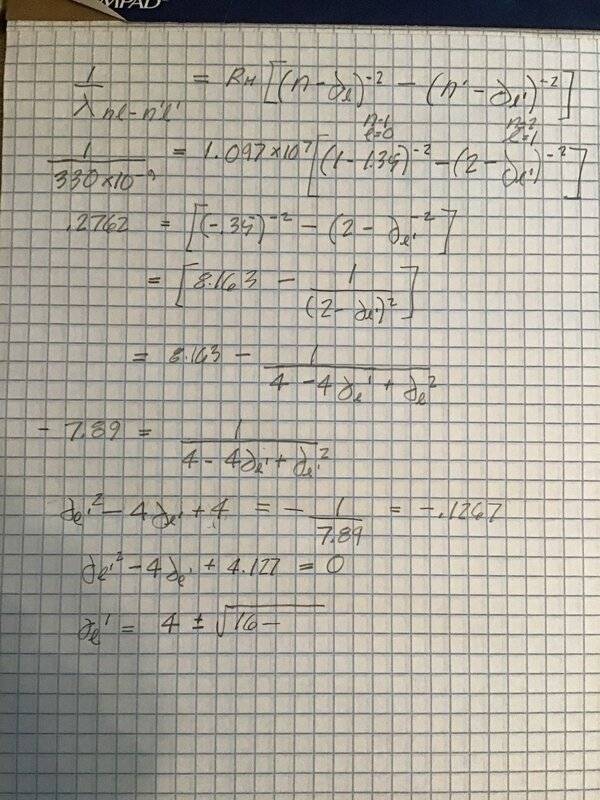 MPAD
1/λ nl-n'l' = RH[(n-∂l)^-2 - (n'-∂l')^-2]
n=1 n=2
l=0 l=1
1/(330×10^-9) = 1.097×10^7[(1-1.35)^-2 - (2-∂l')^-2]
.2762 = [(-.35)^-2 - (2-∂l'^-2]
= [8.163 - 1/(2-∂l')^2]
= 8.163 - 1/(4-4∂l'+∂l^2)
-7.89 = 1/(4-4∂l'+∂l'^2)
∂l'^2 - 4∂l' + 4 = -1/7.89 = -.1267
∂l'^2 - 4∂l' + 4.127 = 0
∂l' = 4 ± √(16-